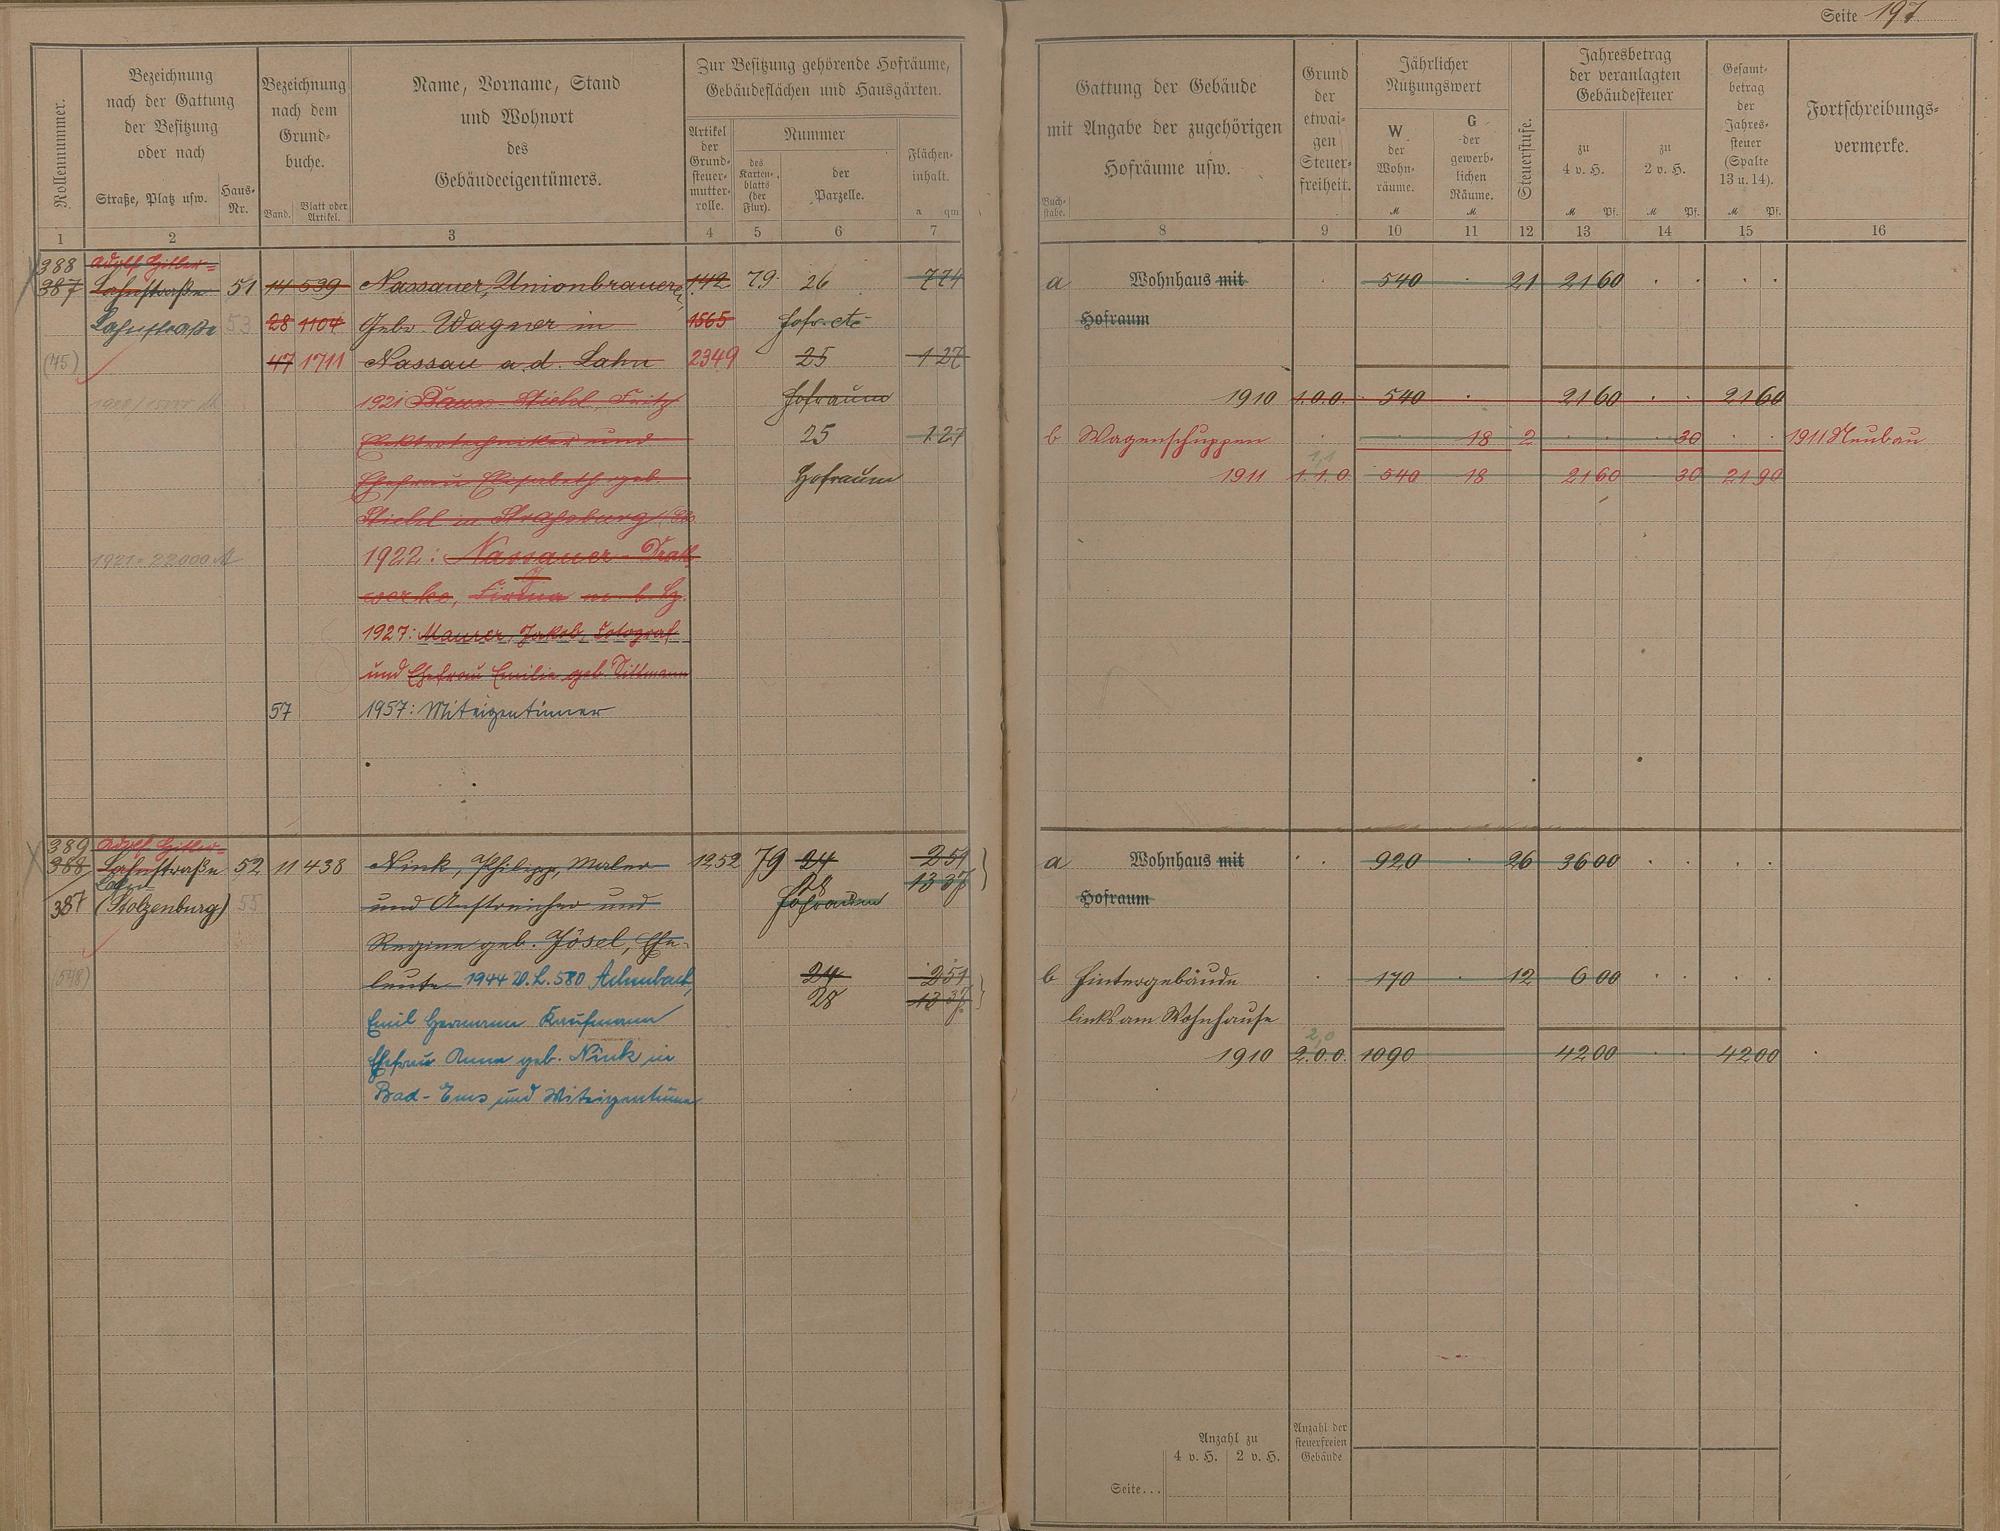 Seite 197
Rollennummer.
Bezeichnung
nach der Gattung
der Besitzung
oder nach
Straße, Platz usw.
Haus-
Nr.
Bezeichnung
nach dem
Grund-
buche.
Band.
Blatt oder
Artikel.
Name, Vorname, Stand
und Wohnort
des
Gebäudeeigentümers.
Zur Besitzung gehörende Hofräume,
Gebäudeflächen und Hausgärten.
Artikel
der
Grund-
steuer-
mutter-
rolle.
Nummer
des
Karten-
blatts
(der
Flur).
der
Parzelle.
Flächen-
inhalt.
a qm
Gattung der Gebäude
mit Angabe der zugehörigen
Hofräume usw.
Buch-
stabe.
Grund
der
etwai-
gen
Steuer-
freiheit.
Jährlicher
Nutzungswert
W
der
Wohn-
räume.
M
G
der
gewerb-
lichen
Räume.
M
Steuerstufe.
Jahresbetrag
der veranlagten
Gebäudesteuer
zu
4 v. H.
M Pf.
zu
2 v. H.
M Pf.
Gesamt-
betrag
der
Jahres-
steuer
(Spalte
13 u. 14).
M Pf.
Fortschreibungs-
vermerke.
1 2 3 4 5 6 7 8 9 10 11 12 13 14 15 16
388 Adolf Hitler-
387 Lahnstraße 51 14 539 Nassauer Unionbrauerei, 142 79 26 774 a Wohnhaus mit 540 21 21 60
Lahnstraße 53 28 1104 Gebr. Wagner in 1565 Hofr. etc Hofraum
(45) 47 1711 Nassau a. d. Lahn 2349 25 1 27
1921 Stiebel, Fritz Hofraum 1910 1.0.0. 540 21 60 21 60
Elektrotechniker und 25 1 27 b Wagenschuppen 18 2 30 1911 Neubau
Ehefrau Elisabeth geb. Hofraum 1911 1.1.0. 540 18 21 60 30 21 90
1,1
Stiebel in Strassburg
1921 = 22000 M 1922: Nassauer-
werke, Firma m. b. H.
1927: Maurer, Jakob, Fotograf
und Ehefrau Emilie geb.
57 1957: Miteigentümer
389 Adolf Hitler-
388 Lahnstraße 52 11 438 Nink, Philipp, Maler 1252 79 24 2 51 a Wohnhaus mit 920 26 36 00
Lahn-
28 13 37
387 (Stolzenburg) 55 und Anstreicher und Hofraum Hofraum
Regine geb. Jösel, Ehe-
(548) leute 1944 V. L. 580 Achenbach, 24 2 51 b Hintergebäude 170 12 6 00
28 13 37
Emil Hermann Kaufmann links am Wohnhause
2,0
Ehefrau Anna geb. Nink in 1910 2.0.0. 1090 42 00 42 00
Bad-Ems und Miteigentümer
Anzahl zu
4 v. H. 2 v. H.
Anzahl der
steuerfreien
Gebäude
Seite...